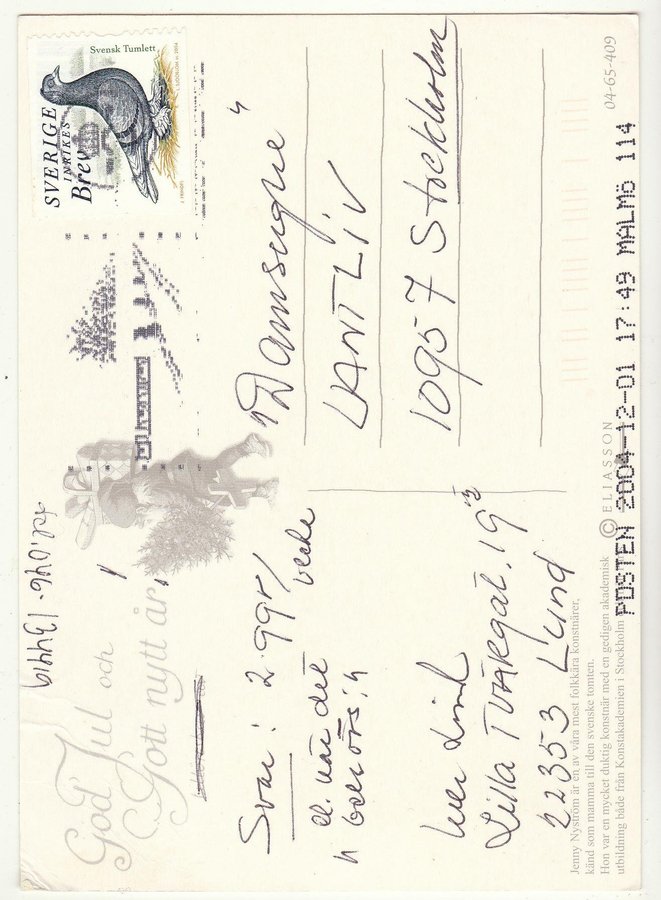 God Jul och
Gott nytt år
tel. 046-134419
Svar: 2 99r/
vecka
el. när det
behövs
Lilla TVÄRGAT. 19
22353 Lund
SVERIGE
INRIKES
Brev
Svensk Tumlett
"Damsugare"
LANTLIV
10957 Stockholm
Jenny Nyström är en av våra mest folkkära konstnärer,
känd som mamma till den svenske tomten.
Hon var en mycket duktig konstnär med en gedigen akademisk
utbildning både från Konstakademien i Stockholm
© ELIASSON
04-65-409
POSTEN 2004-12-01 17:49 MALMÖ 114